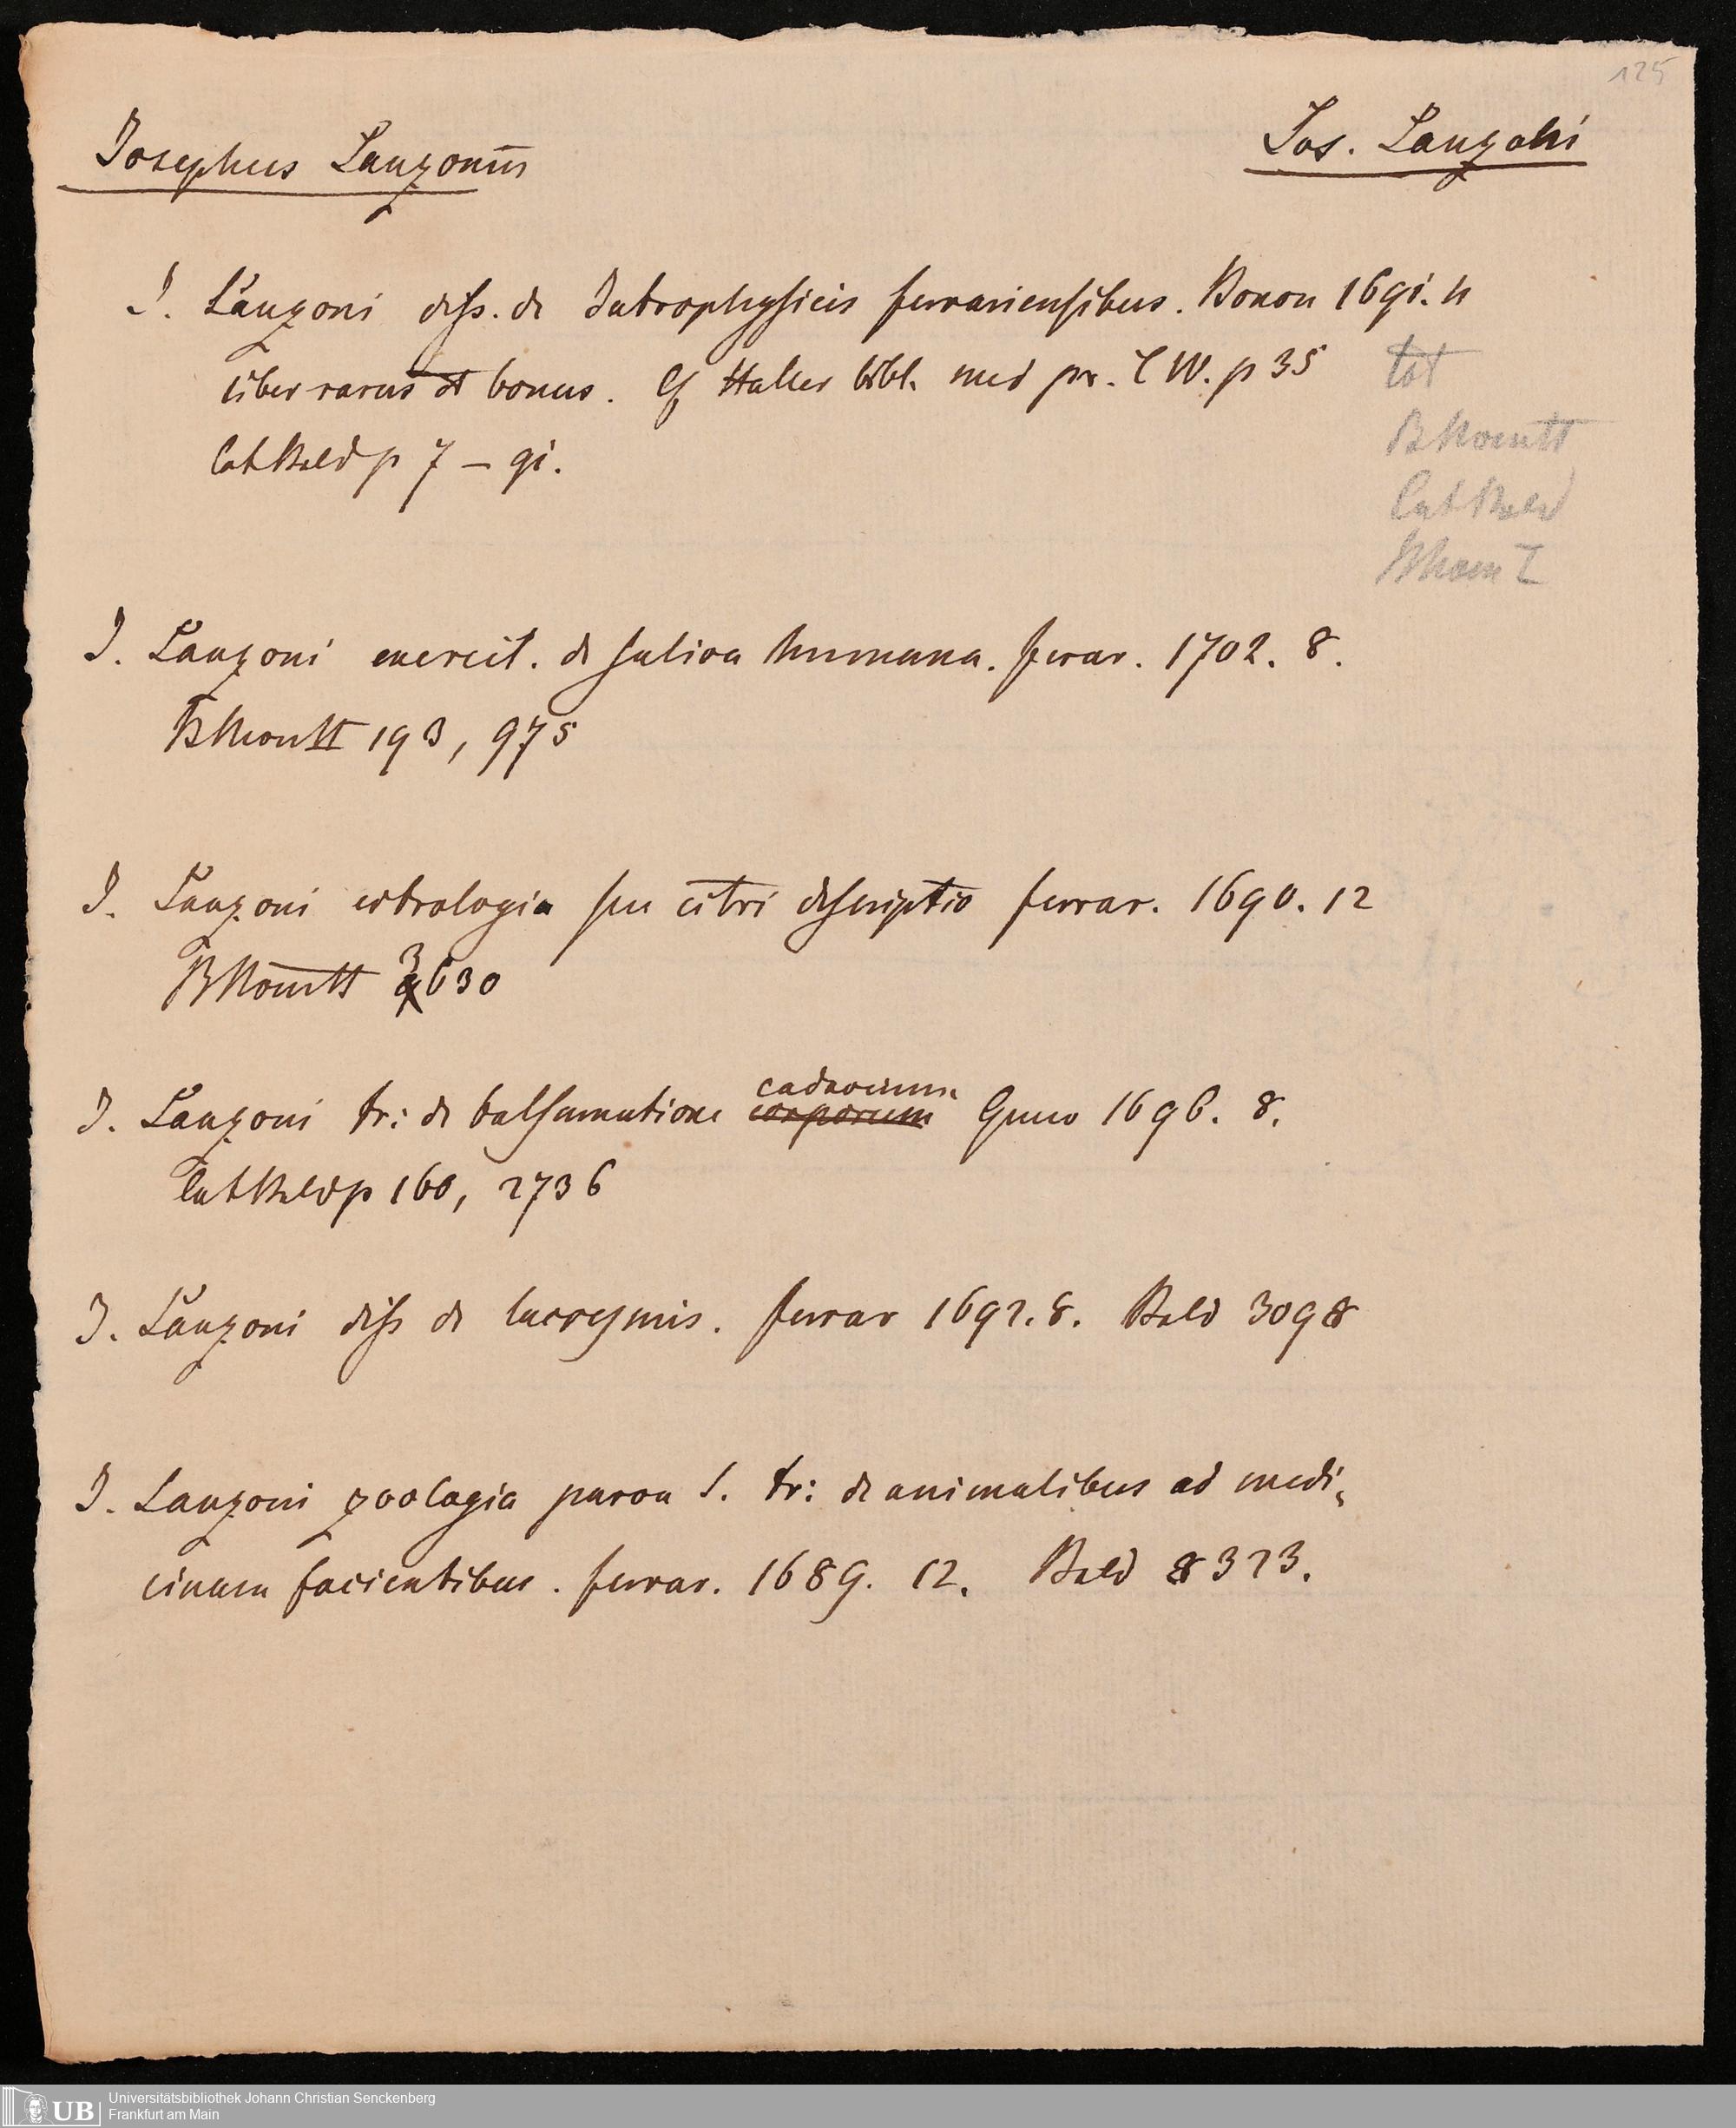 125
Josephus Lanzonius
Jos. Lanzoni
J. Lanzoni diss. de Iatrophysicis ferrariensibus. Bonon 1691. 4
liber rarus et bonus. Cf Haller bibl. med pr. T IV. p 35
tot
Cat Bald p 7 – 91.
BRom II
Cat Bald
BRom I
J. Lanzoni exercit. de saliva humana. ferrar. 1702. 8.
BRom II 193, 975
J. Lanzoni citrologia seu citri descriptio ferrar. 1690. 12
BRom II 3630
J. Lanzoni tr: de balsamatione corporum cadaverum Genev 1696. 8.
Cat Bald p 160, 2736
J. Lanzoni diss de lacrymis. ferrar 1692. 8. Bald 3098
J. Lanzoni zoologia parva s. tr: de animalibus ad medi-
cinam facientibus. ferrar. 1689. 12. Bald 8323.
UB Universitätsbibliothek Johann Christian Senckenberg
Frankfurt am Main